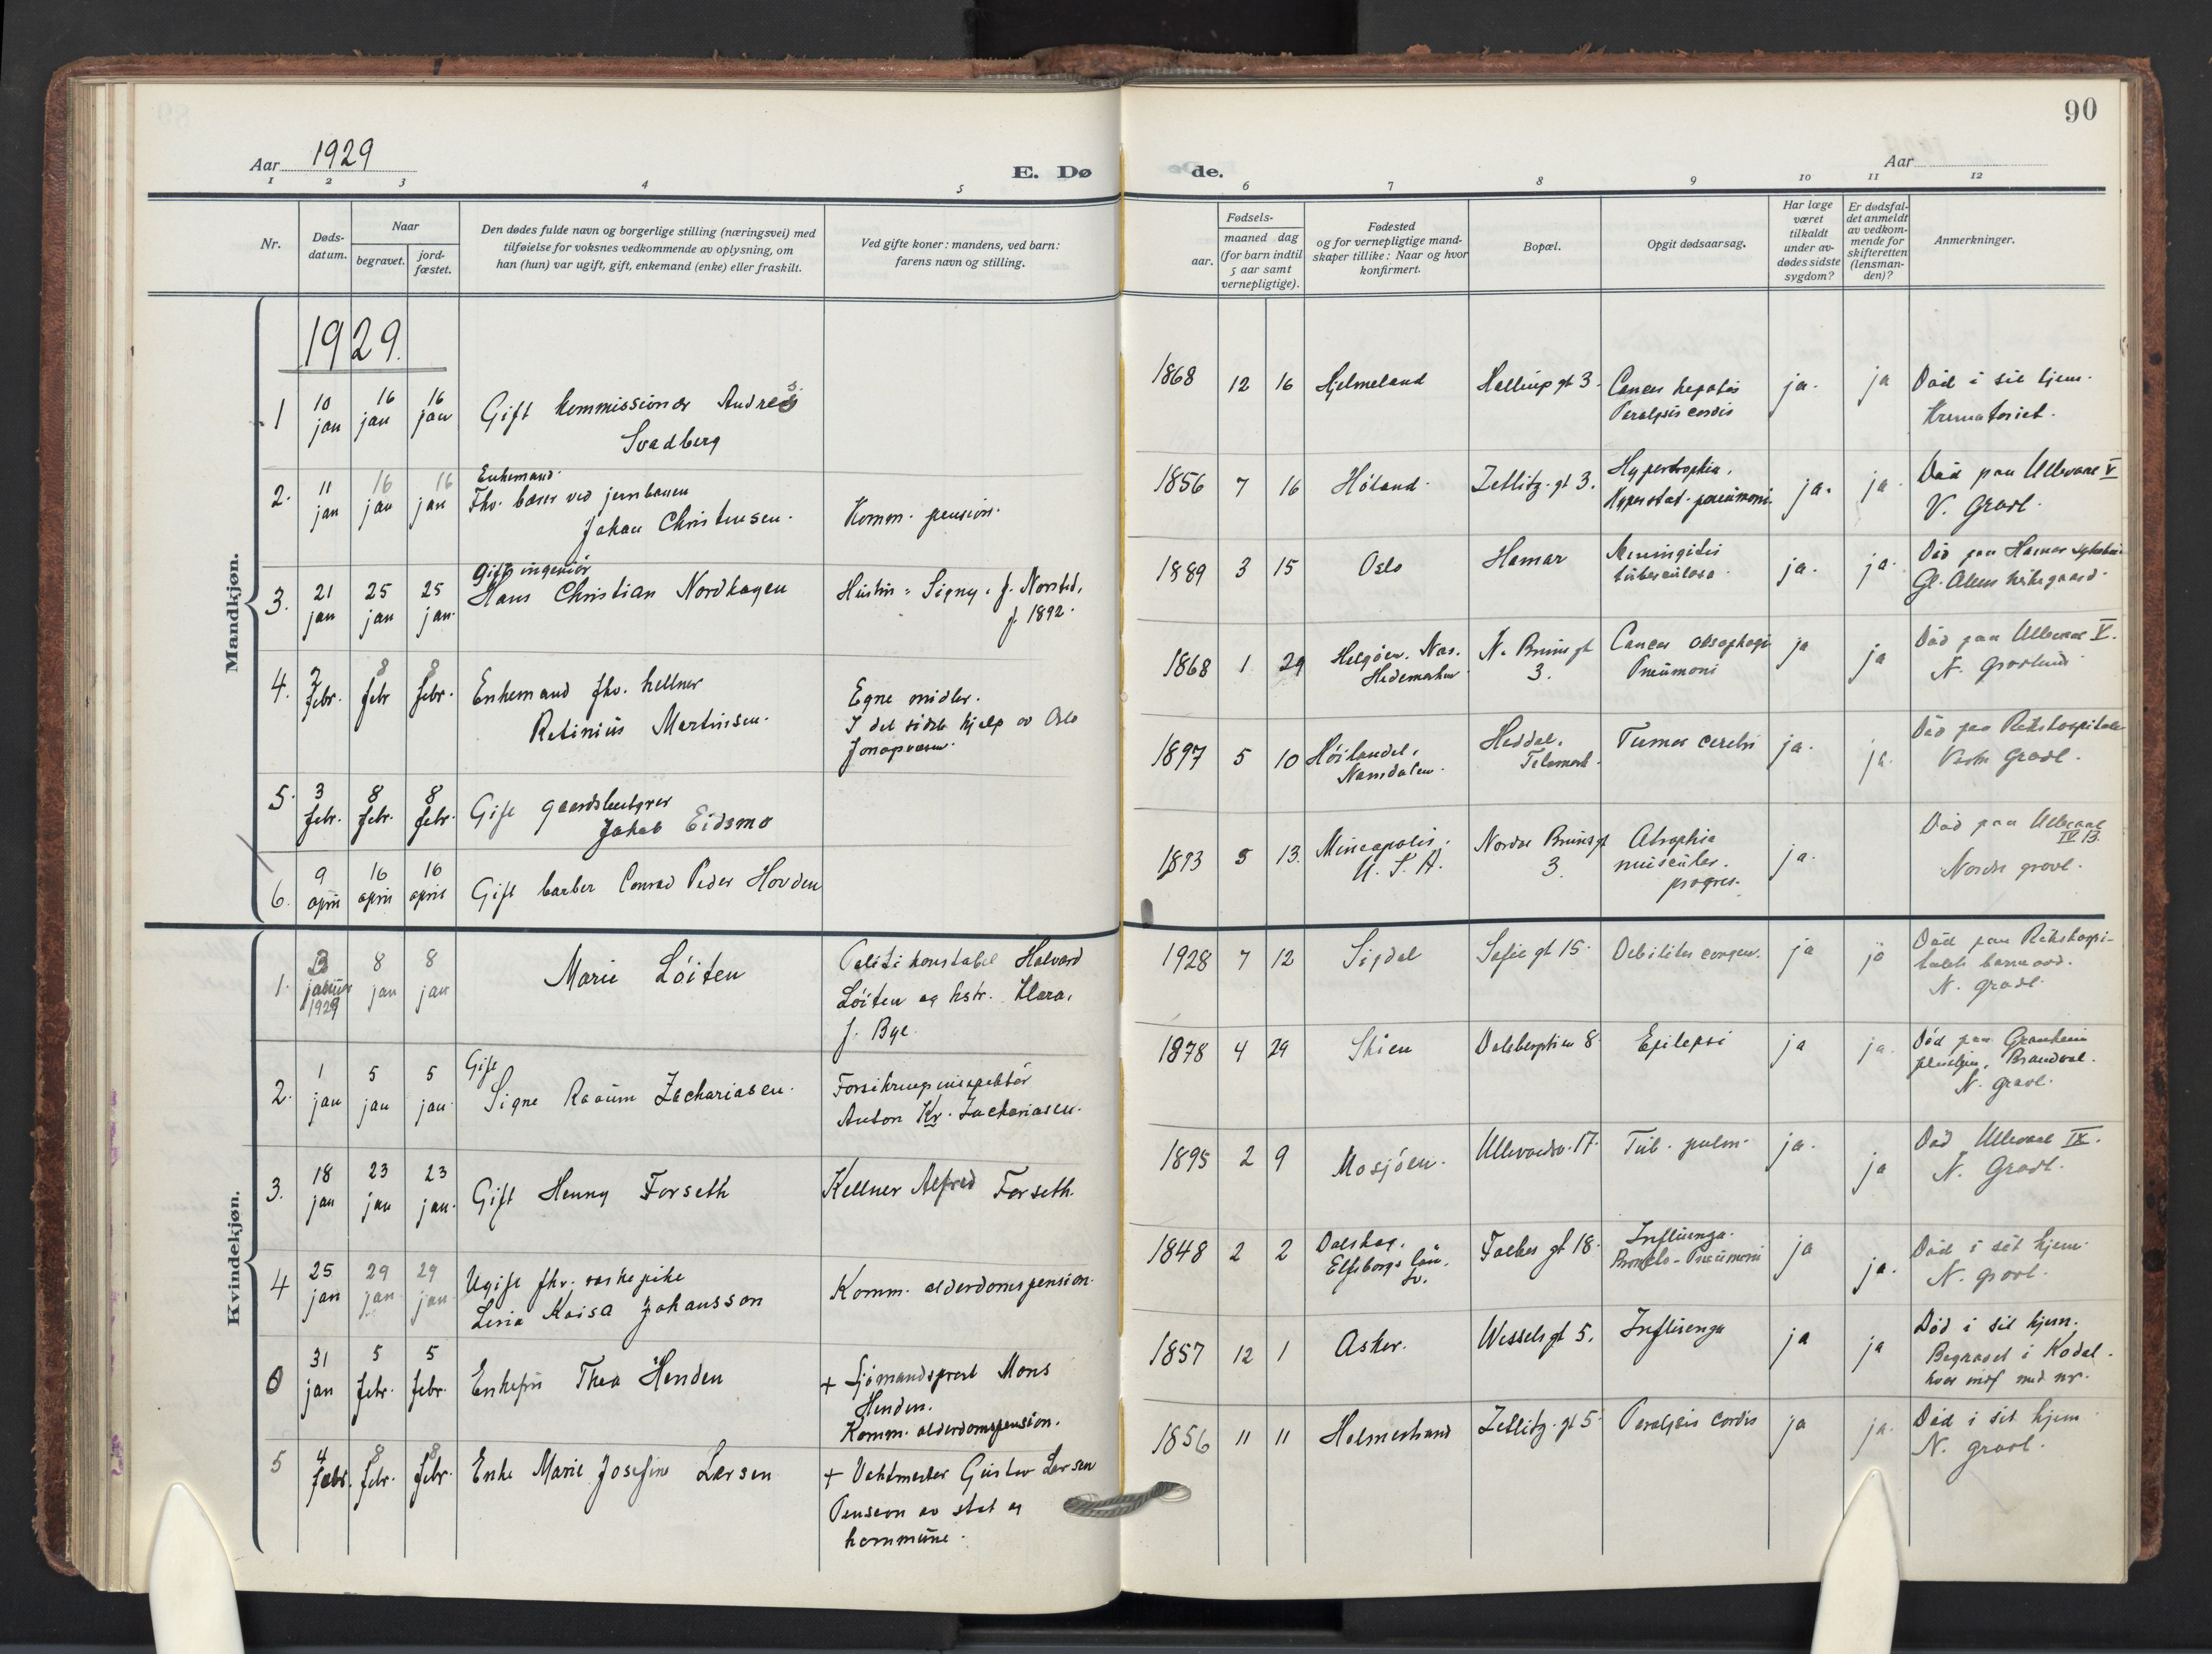 90
Aar 1929
E. Dø
de.
Aar
1 2 3 4 5
6 7 8 9 10 11 12
Nr.
Døds-
datum.
Naar
begravet.
jord-
fæstet.
Den dødes fulde navn og borgerlige stilling (næringsvei) med
tilføielse for voksnes vedkommende av oplysning, om
han (hun) var ugift, gift, enkemand (enke) eller fraskilt.
Ved gifte koner: mandens, ved barn:
farens navn og stilling.
Fødsels-
aar.
maaned dag
(for barn indtil
5 aar samt
vernepligtige).
Fødested
og for vernepligtige mand-
skaper tillike: Naar og hvor
konfirmert.
Bopæl.
Opgit dødsaarsag.
Har læge
været
tilkaldt
under av-
dødes sidste
sygdom?
Er dødsfal-
det anmeldt
av vedkom-
mende for
skifteretten
(lensman-
den)?
Anmerkninger.
Mandkjøn.
1929.
1 10 jan 16 jan 16 jan
Gift kommissionær Andreas
Svadberg
1868 12 16 Hjelmeland
Hallings gt 3.
Cancer hepatis
Paralysis cordis
ja. ja
Død i sit hjem.
Krematoriet.
2. 11 jan 16 jan 16 jan
Enkemand.
Fhv. bærer ved jernbanen
Johan Christensen.
Komm. pension.
1856 7 16 Høland.
Zetlitz. gt 3.
Hypertrophia.
Hyperstat. pneumoni.
ja. ja.
Død paa Ullevaal V
V. Gravl.
3. 21 jan 25 jan 25 jan.
Gift ingeniør
Hans Christian Nordhagen
Hustru: Signy. f. Norsted,
f. 1892.
1889 3 15 Oslo
Hamar
Meningitis
tuberculosa.
ja. ja.
Død paa Hamar sykehus
Gl. Akers kirkegaard.
4. 2 febr. 8 febr 8 febr.
Enkemand fhv. kellner
Retinius Martinsen.
Egne midler.
I det sidste hjelp av Oslo
forsorgsvæsen.
1868 1 29 Helgøen. Nes.
Hedemarken
N. Bruns gt
3.
Cancer oesophagi
Pneumoni
ja ja
Død paa Ullevaal V.
N. Gravlund
5. 3 febr. 8 febr. 8 febr.
Gift gaardsbestyrer
Jakob Eidsmo
1897 5 10 Høilandet,
Namdalen.
Heddal.
Telemark.
Tumor cerebri
ja. ja.
Død paa Rikshospitalet
Vestre Gravl.
6. 9 april 16 april 16 april
Gift barber Conrad Peder Hovden
1893 5 13. Mineapolis.
U. S. A.
Nordre Bruns gt
3.
Atrophia
muscular.
progres.
ja.
Død paa Ullevaal
IV 13.
Nordre gravl.
Kvindekjøn.
1. 3 januar 1929 8 jan 8 jan
Marie Løiten
Politikonstabel Halvard
Løiten og hstr. Klara,
f. Bye.
1928 7 12 Sigdal
Sofies gt 15.
Debilitas congen.
ja ja
Død paa Rikshospi-
talets barneavd.
N. gravl.
2. 1 jan 5 jan 5 jan.
Gift
Signe Ravum Zachariasen.
Forsikringsinspektør
Anton Kr. Zachariasen.
1878 4 29 Skien
Dalsbergstien 8.
Epilepsi
ja ja.
Død paa Granheim
pleiehjem, Brandval.
N. gravl.
3. 18 jan 23 jan 23 jan.
Gift Henny Forseth
Kellner Alfred Forseth.
1895 2 9 Mosjøen.
Ullevaalsv. 17.
Tub. pulm.
ja. ja
Død Ullevaal IX.
N. Gravl.
4 25 jan 29 jan 29 jan
Ugift fhv. vaskepike
Lina Kaisa Johansson
Komm. alderdomspension.
1848 2 2 Dalskog.
Elfsborgs län.
Sv.
Falbes gt 18.
Influenza.
Broncho-Pneumoni
ja ja.
Død i sit hjem.
N. gravl.
0 31 jan 5 febr. 5 febr.
Enkefru Thea Henden
+ Sjømandsprest Mons
Henden.
Komm. alderdomspension.
1857 12 1 Asker.
Wessels gt 5.
Influenza
ja ja
Død i sit hjem.
Begravet i Kodal.
hvor indf med nr.
5 4 febr. 8 febr. 8 febr.
Enke Marie Josefine Larsen
+ Vaktmester Gustav Larsen
Pension av stat og
kommune.
1856 11 11 Holmestrand
Zetlitz. gt 5.
Paralysis cordis
ja ja.
Død i sit hjem
N. gravl.